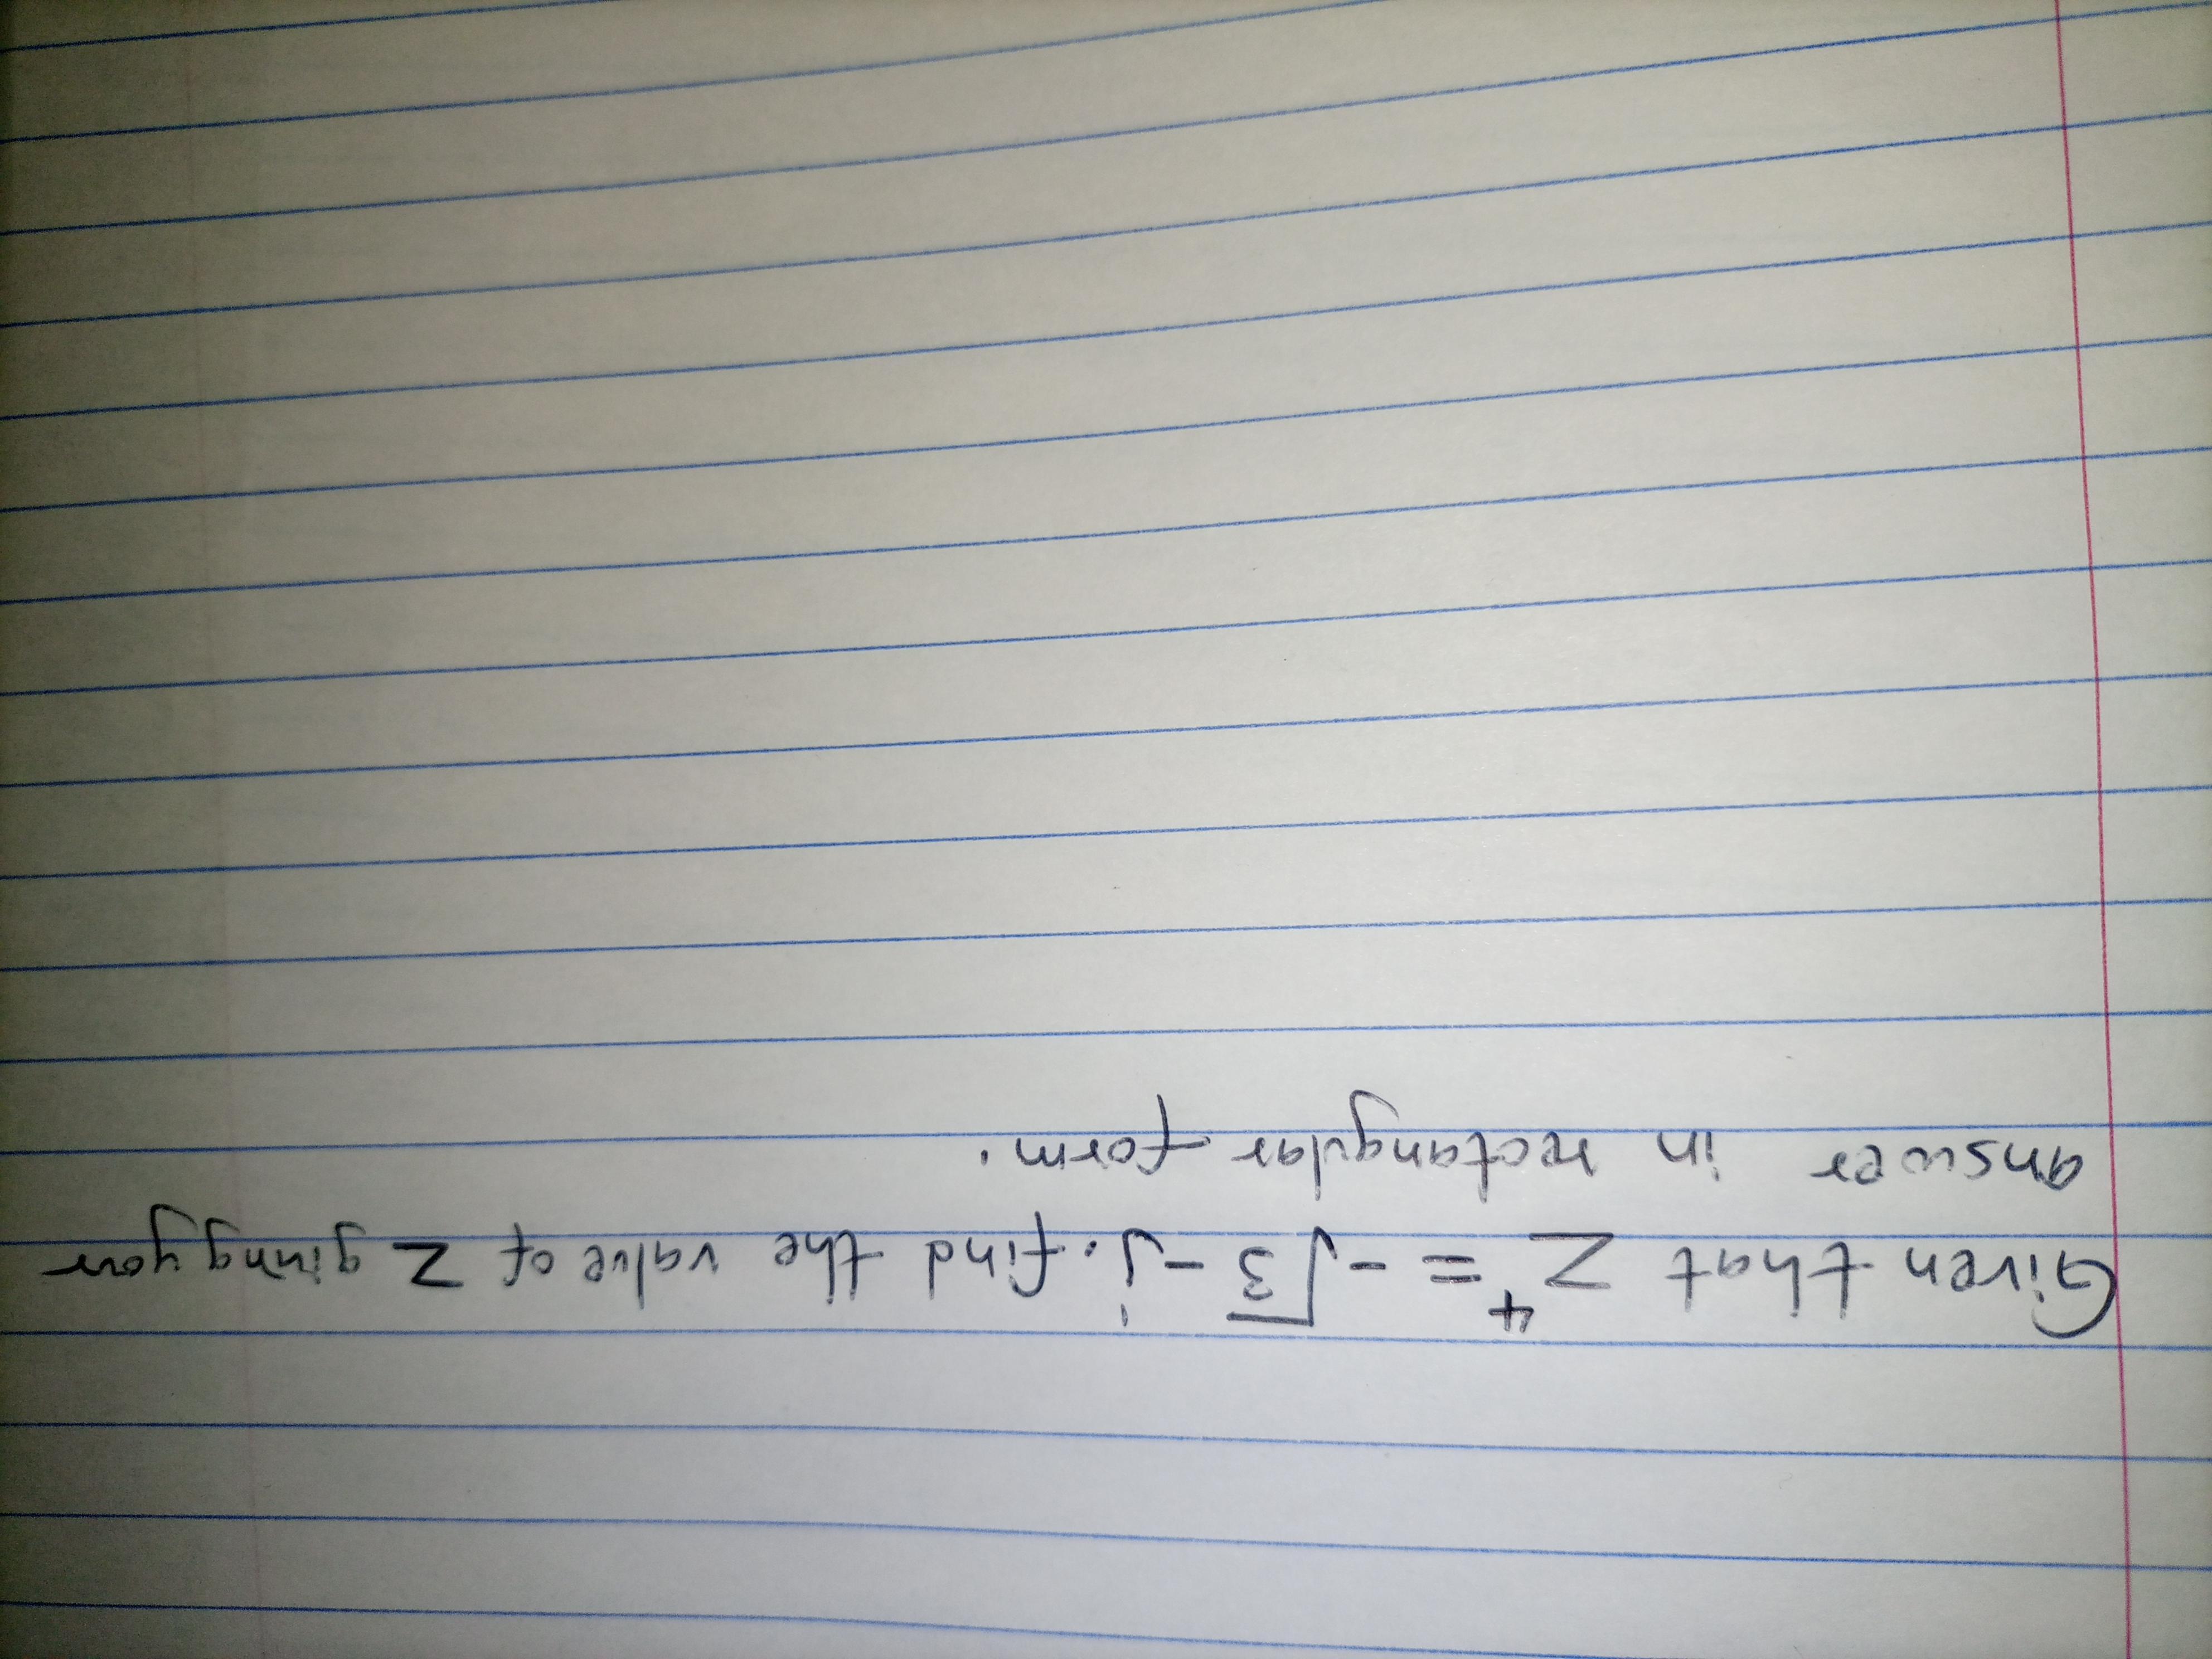 Given that Z⁴ = -√3 - j. find the value of Z giving your
answer in rectangular form.